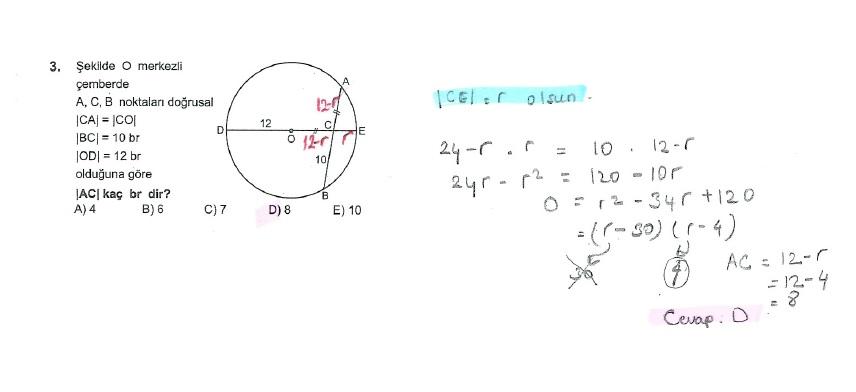 3. Şekilde O merkezli
çemberde
A, C, B noktaları doğrusal
|CA| = |CO|
|BC| = 10 br
|OD| = 12 br
olduğuna göre
|AC| kaç br dir?
A) 4 B) 6 C) 7 D) 8 E) 10
A
12-r
D 12 O C E
12-r r
10
B
|CE| = r olsun.
24-r . r = 10 . 12-r
24r - r² = 120 - 10r
0 = r² - 34r + 120
= (r-30) (r-4)
30 4
AC = 12-r
= 12-4
= 8
Cevap : D